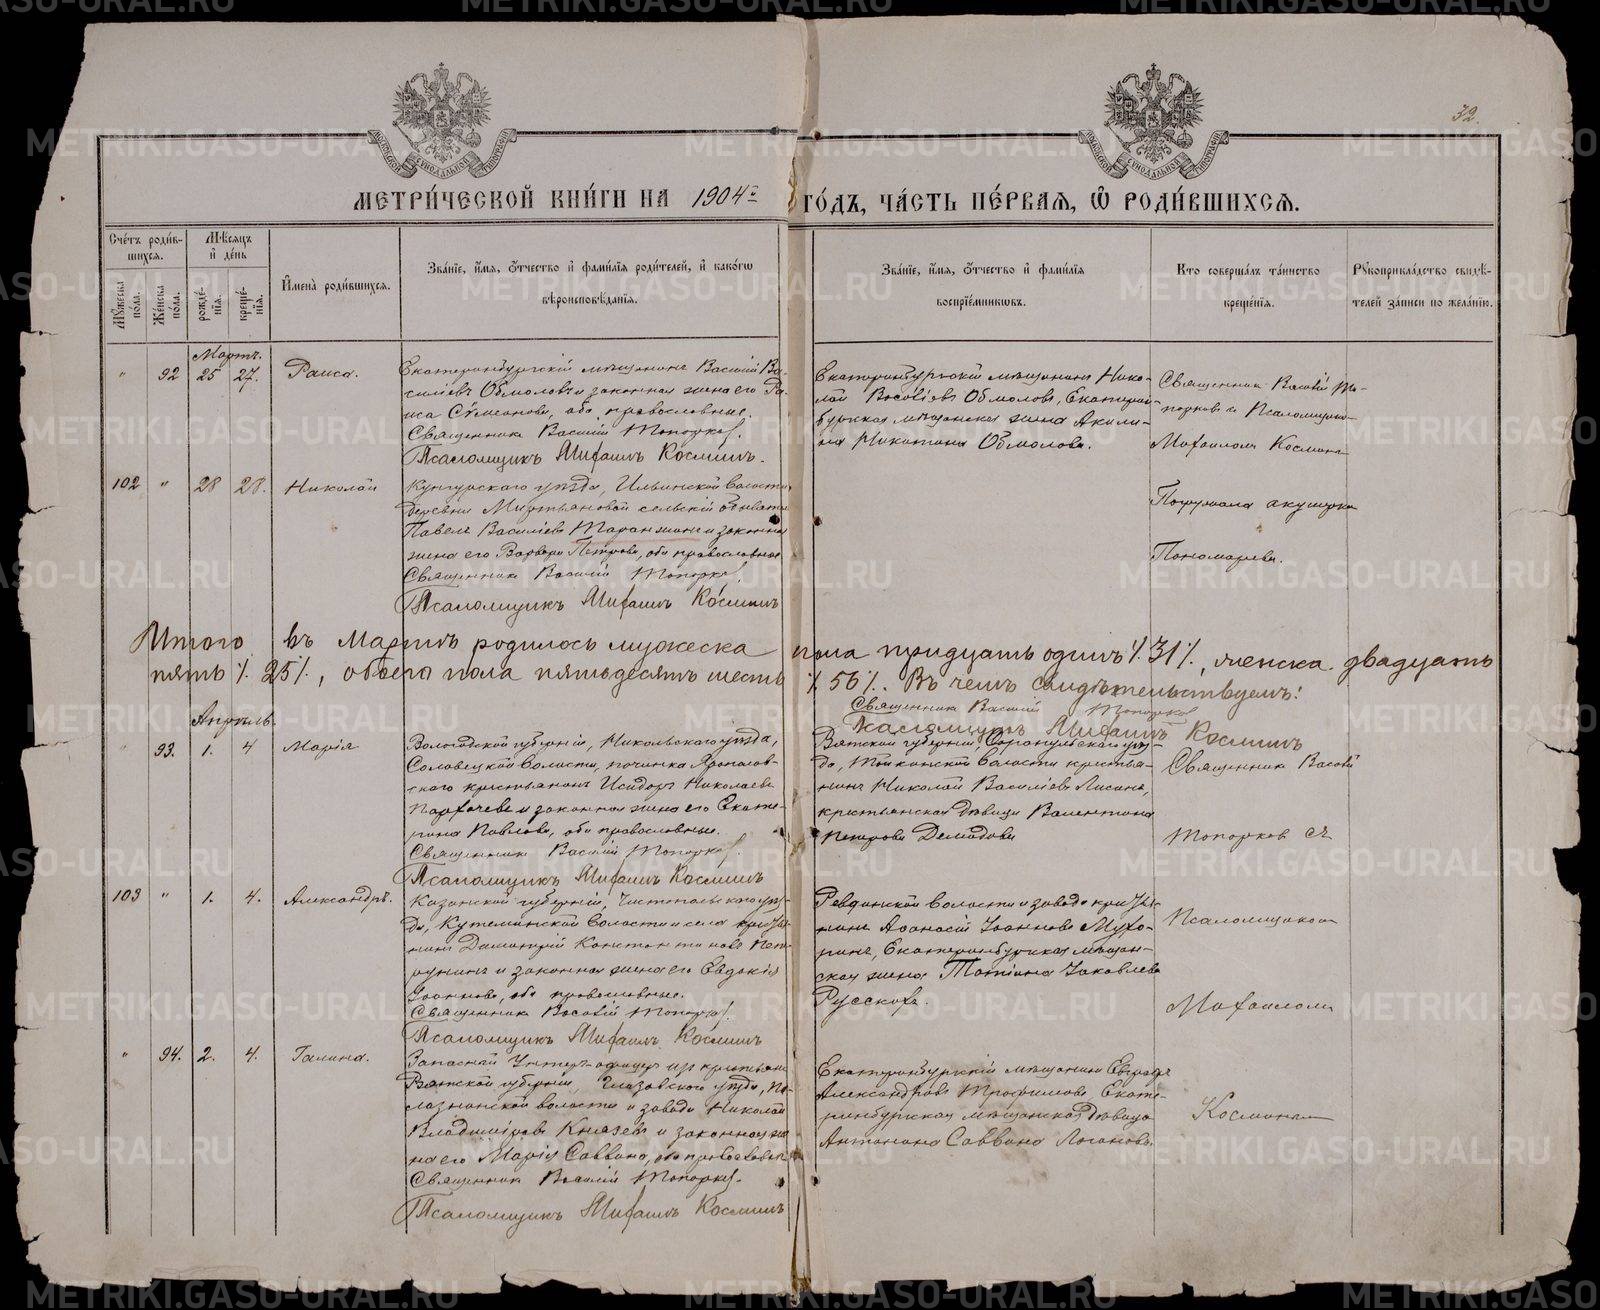 32.
МЕТРИ́ЧЕСКОЙ КНИ́ГИ НА 1904й ГО́ДЪ, ЧА́СТЬ ПЕ́РВАѦ, Ѽ РОДИ́ВШИХСѦ.
Сче́тъ роди́в-
шихся.
Му́жеска пола.
Же́нска пола.
Мѣ́сяцъ
и де́нь
рожде-
нія.
креще-
нія.
Имена̀ роди́вшихся.
Зва́ніе, и́мя, о́тчество и фами́лія роди́телей, и како́гѡ
вѣроисповѣ́данія.
Зва́ніе, и́мя, о́тчество и фами́лія
воспріе́мниковъ.
Кто соверша́лъ та́инство
креще́нія.
Рꙋкоприкла́дство свидѣ́-
телей за́писи по жела́нію.
Мартъ.
" 92 25 27. Раиса.
Екатеринбургскій мѣщанинъ Василій Ва-
сильевъ Обмоловъ и законная жена его Ра-
иса Сѵмеонова, оба православные.
Священникъ Василій Топорковъ.
Псаломщикъ Михаилъ Косминъ.
Екатеринбургскій мѣщанинъ Нико-
лай Васильевъ Обмоловъ, Екатерин-
бургская мѣщанская жена Акили-
на Никитина Обмолова.
Священникъ Василій То-
порковъ съ Псаломщикомъ
Михаиломъ Косминымъ
102 " 28 28. Николай
Кунгурскаго уѣзда, Ильинской волости,
деревни Мартьяновой сельскій обыватель
Павелъ Васильевъ Таранжинъ и законная
жена его Варвара Петрова, оба православные
Священникъ Василій Топорковъ.
Псаломщикъ Михаилъ Косминъ
Погружала акушерка
Пономарева.
Итого въ Мартѣ родилось мужеска пола тридцать одинъ /. 31 /., женска двадцать
пять /. 25 /., обоего пола пятьдесятъ шесть /. 56 /. Въ чемъ свидѣтельствуемъ:
Священникъ Василій Топорковъ
Псаломщикъ Михаилъ Косминъ
Апрѣль.
" 93. 1. 4 Марія
Вологодской губерніи, Никольскаго уѣзда,
Соловецкой волости, починка
крестьянинъ Исидоръ Николаевъ
Парфачевъ и законная жена его Екате-
рина Павлова, оба православные.
Священникъ Василій Топорковъ.
Псаломщикъ Михаилъ Косминъ
Вятской губерніи, Сарапульскаго уѣз-
да, волости крестья-
нинъ Николай Васильевъ Лисинъ,
крестьянская дѣвица Валентина
Петрова Демидова
Священникъ Василій
Топорковъ съ
103 " 1. 4. Александръ.
Казанской губерніи, Чистопольскаго уѣз-
да, Кутеминской волости и села крестья-
нинъ Димитрій Константиновъ
и законная жена его Евдокія
Іоаннова, оба православные.
Священникъ Василій Топорковъ.
Псаломщикъ Михаилъ Косминъ
Ревдинской волости и завода крестья-
нинъ Аѳанасій Іоанновъ Мухо-
ринъ, Екатеринбургская мѣщан-
ская жена Татіана Іаковлева
Русскова.
Псаломщикомъ
Михаиломъ
" 94. 2. 4. Галина.
Запасный Унтеръ-офицеръ изъ крестьянъ
Вятской губерніи, Глазовскаго уѣзда,
волости и завода Николай
Владиміровъ Князевъ и законная же-
на его Марія Саввина, оба православные
Священникъ Василій Топорковъ.
Псаломщикъ Михаилъ Косминъ
Екатеринбургскій мѣщанинъ Евграфъ
Александровъ Трофимовъ, Екате-
ринбургская мѣщанская дѣвица
Антонина Саввина Логанова.
Косминымъ
METRIKI.GASO-URAL.RU